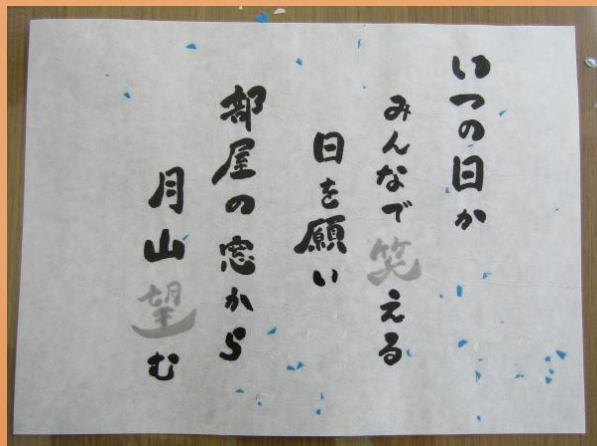 いつの日か
みんなで笑える
日を願い
部屋の窓から
月山望む